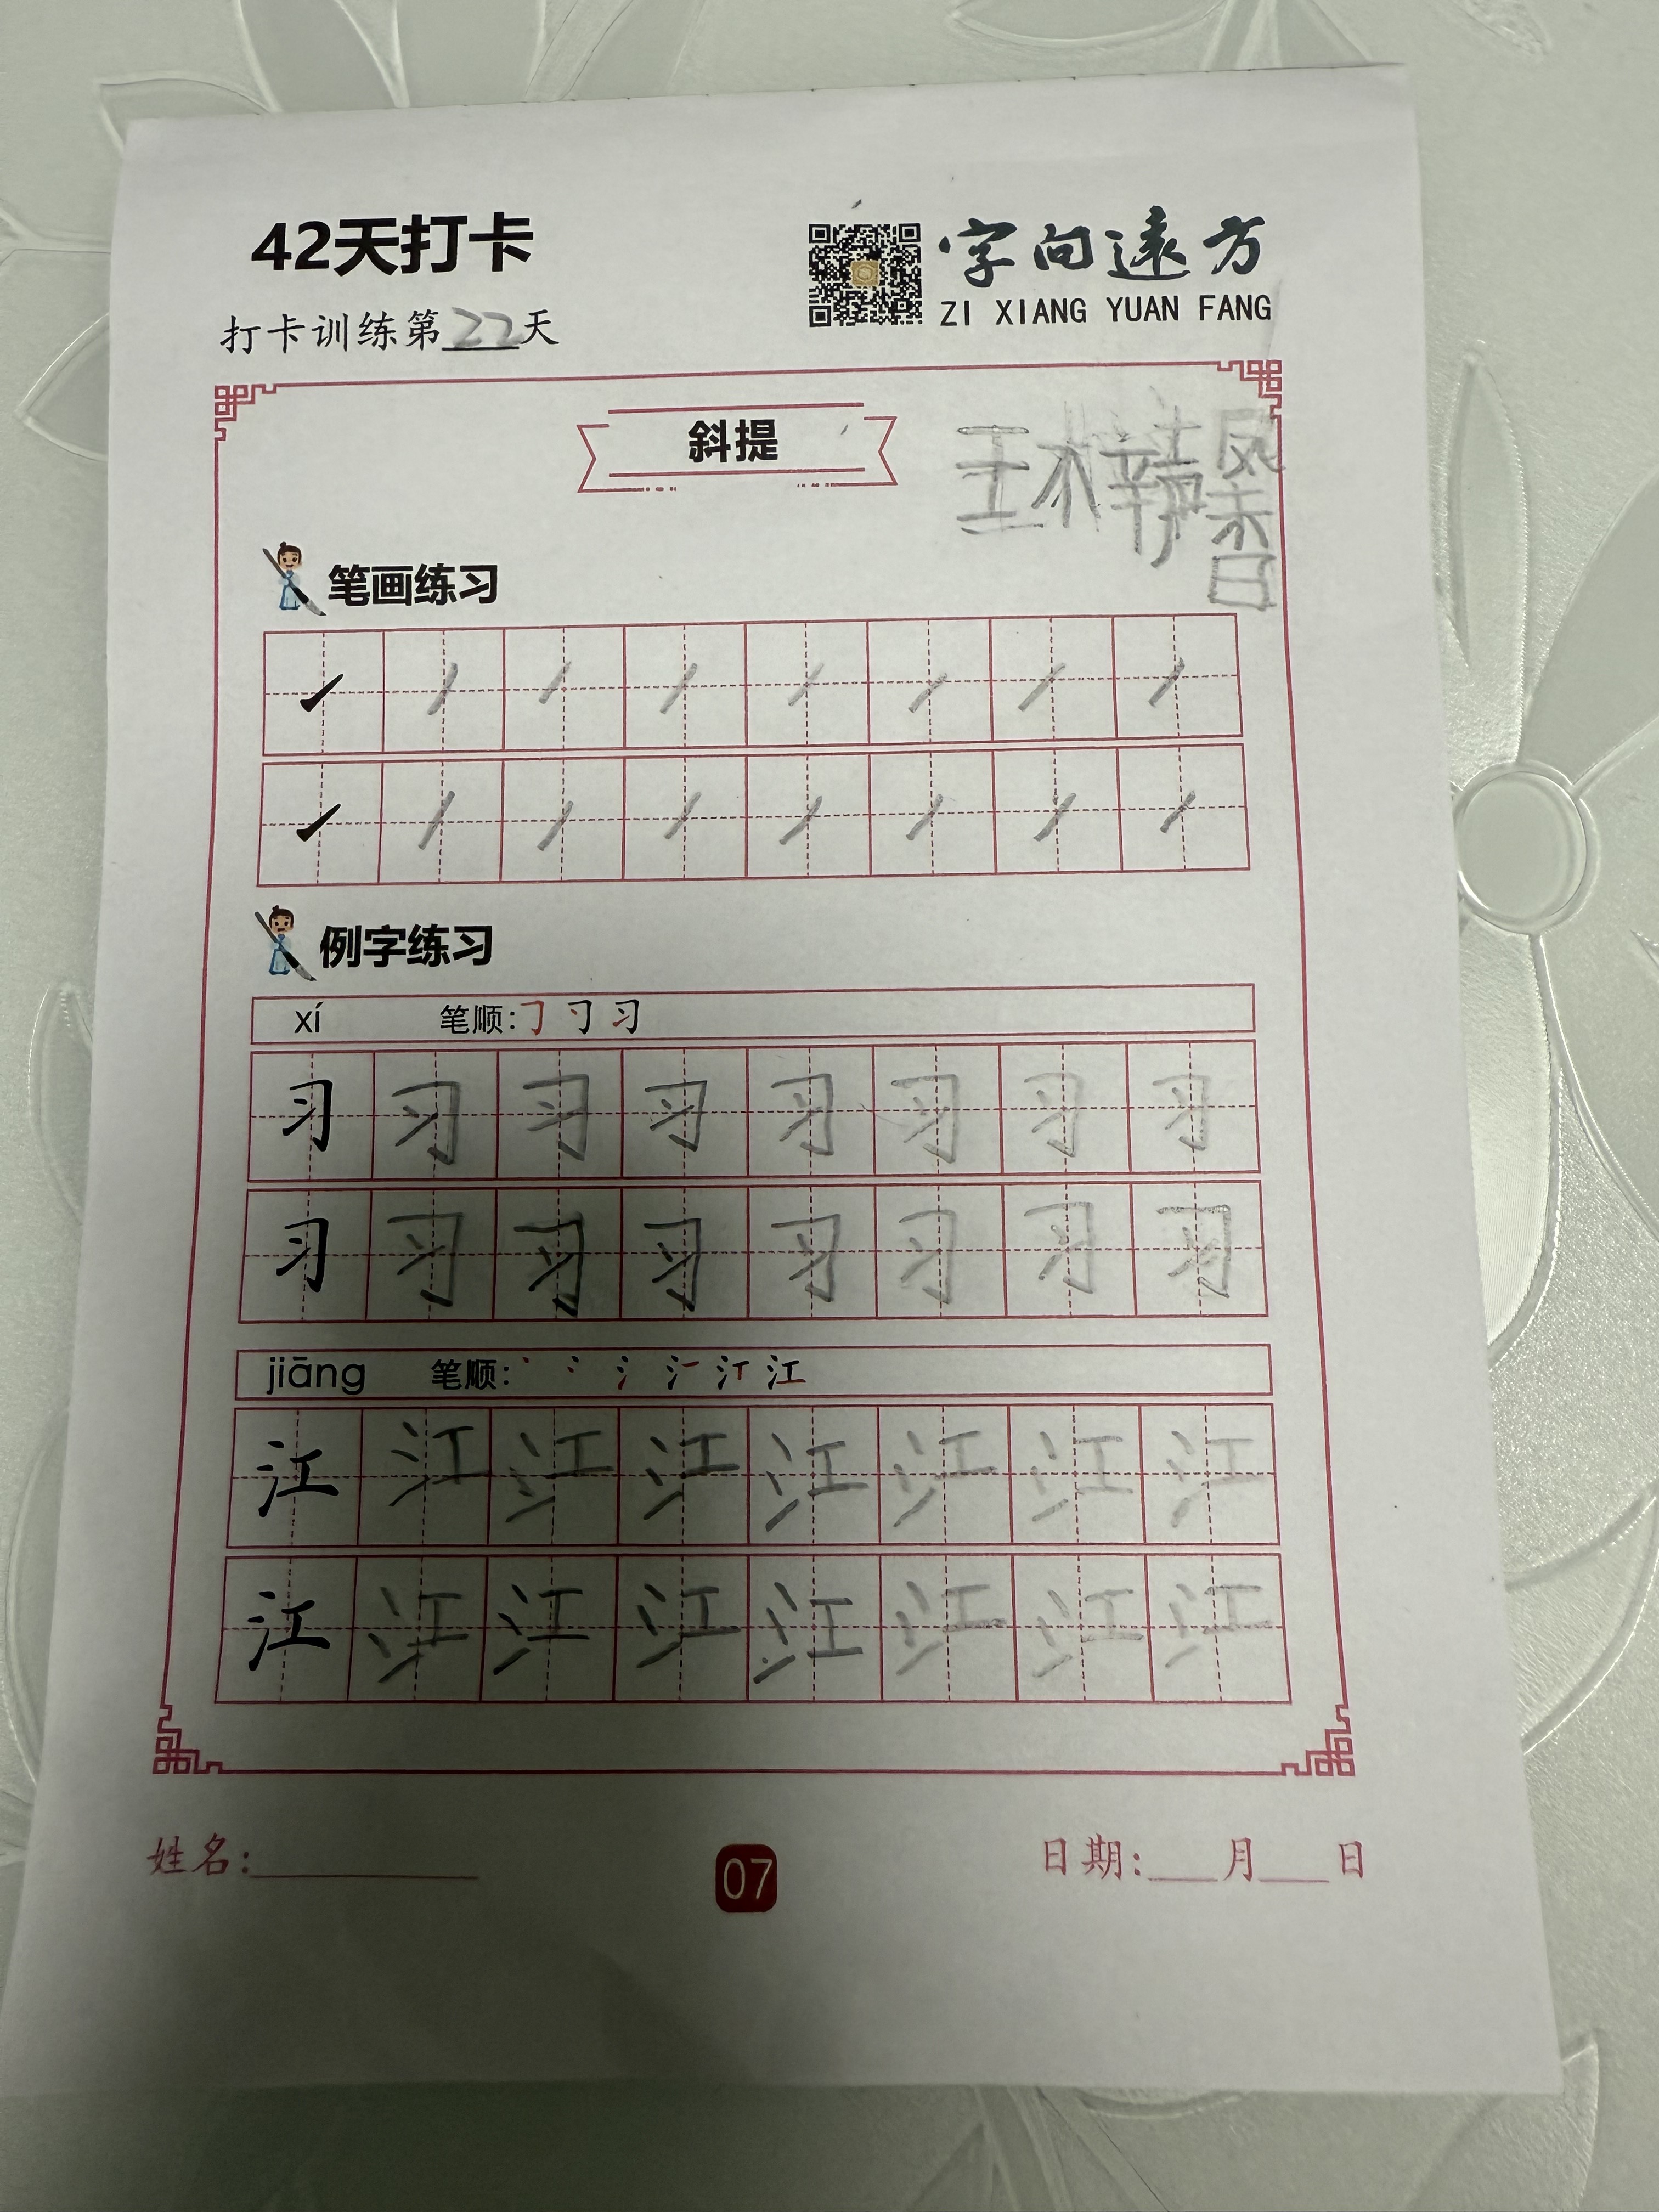 42天打卡
字向遠方
ZI XIANG YUAN FANG
打卡训练第22天
斜提
笔画练习
例字练习
xí 笔顺: 习
习 习 习 习 习 习 习 习
习 习 习 习 习 习 习 习
jiāng 笔顺: 江
江 江 江 江 江 江 江 江
江 江 江 江 江 江 江 江
姓名:
07
日期: 月 日